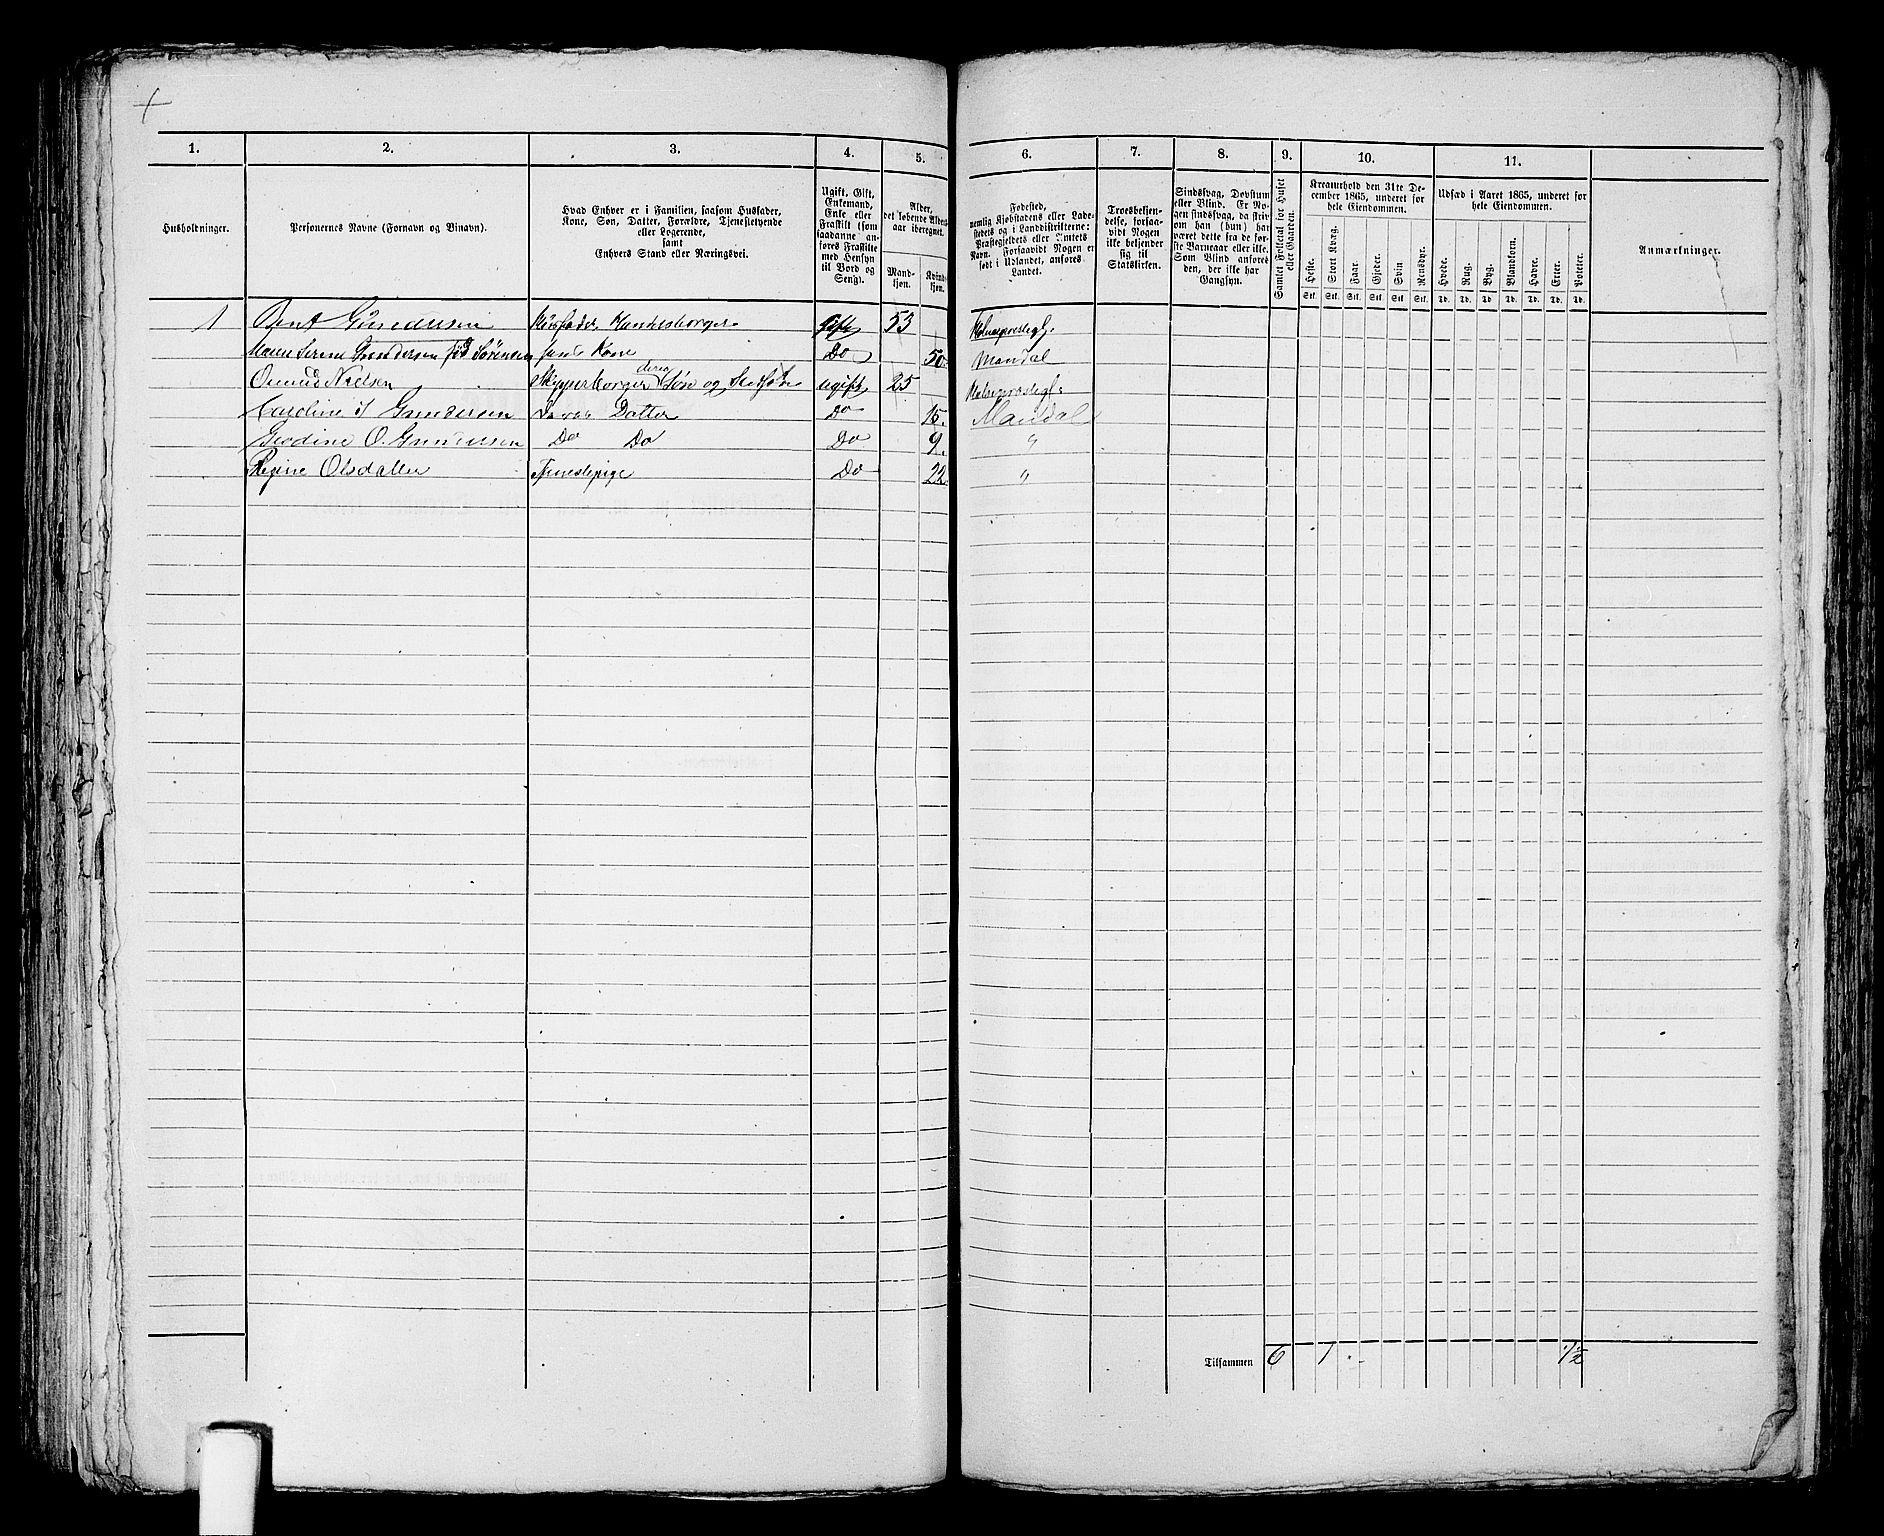 1. 2. 3. 4. 5. 6. 7. 8. 9. 10. 11.
Husholdninger.
Personernes Navne (Fornavn og Binavn).
Hvad Enhver er i Familien, saasom Husfader,
Kone, Søn, Datter, Forældre, Tjenestetyende
eller Logerende,
samt
Enhvers Stand eller Næringsvei.
Ugift, Gift,
Enkemand,
Enke eller
Fraskilt (som
saadanne an-
føres Fraskilte
med Hensyn
til Bord og
Seng).
Alder,
det løbende Alders-
aar iberegnet.
Mand-
kjøn.
Kvinde-
kjøn.
Fødested,
nemlig Kjøbstadens eller Lade-
stedets og i Landdistrikterne:
Præstegjeldets eller Amtets
Navn. Forsaavidt Nogen er
født i Udlandet, anføres
Landet.
Troesbekjen-
delse, forsaa-
vidt Nogen
ikke bekjender
sig til
Statskirken.
Sindssvag, Døvstum
eller Blind. Er No-
gen sindssvag, da skriv
om han (hun) har
været dette fra de før-
ste Barneaar eller ikke.
Som Blind anføres
den, der ikke har
Gangsyn.
Samlet Folketal for Huset
eller Gaarden.
Kreaturhold den 31te De-
cember 1865, underet for
hele Eiendommen.
Heste. Stort Kvæg. Faar. Gjeder. Svin Rensdyr.
Stk. Stk. Stk. Stk. Stk. Stk.
Udsæd i Aaret 1865, underet for
hele Eiendommen.
Hvede. Rug. Byg. Blandkorn. Havre. Erter. Poteter.
Td. Td. Td. Td. Td. Td. Td.
Anmærkninger.
1 Bent Gundersen Husfader Handelsborger Gift 53
Serine Gundersen fød Sørensen hans Kone Do 50 Mandal
Nielsen Skipperborger deres Søn og ugift 25
Caroline Gundersen Datter Do 15. Mandal
O. Gundersen Do Do Do 9. "
Regine Olsdatter Tjenestepige Do 22 "
Tilsammen 6 1 1/2